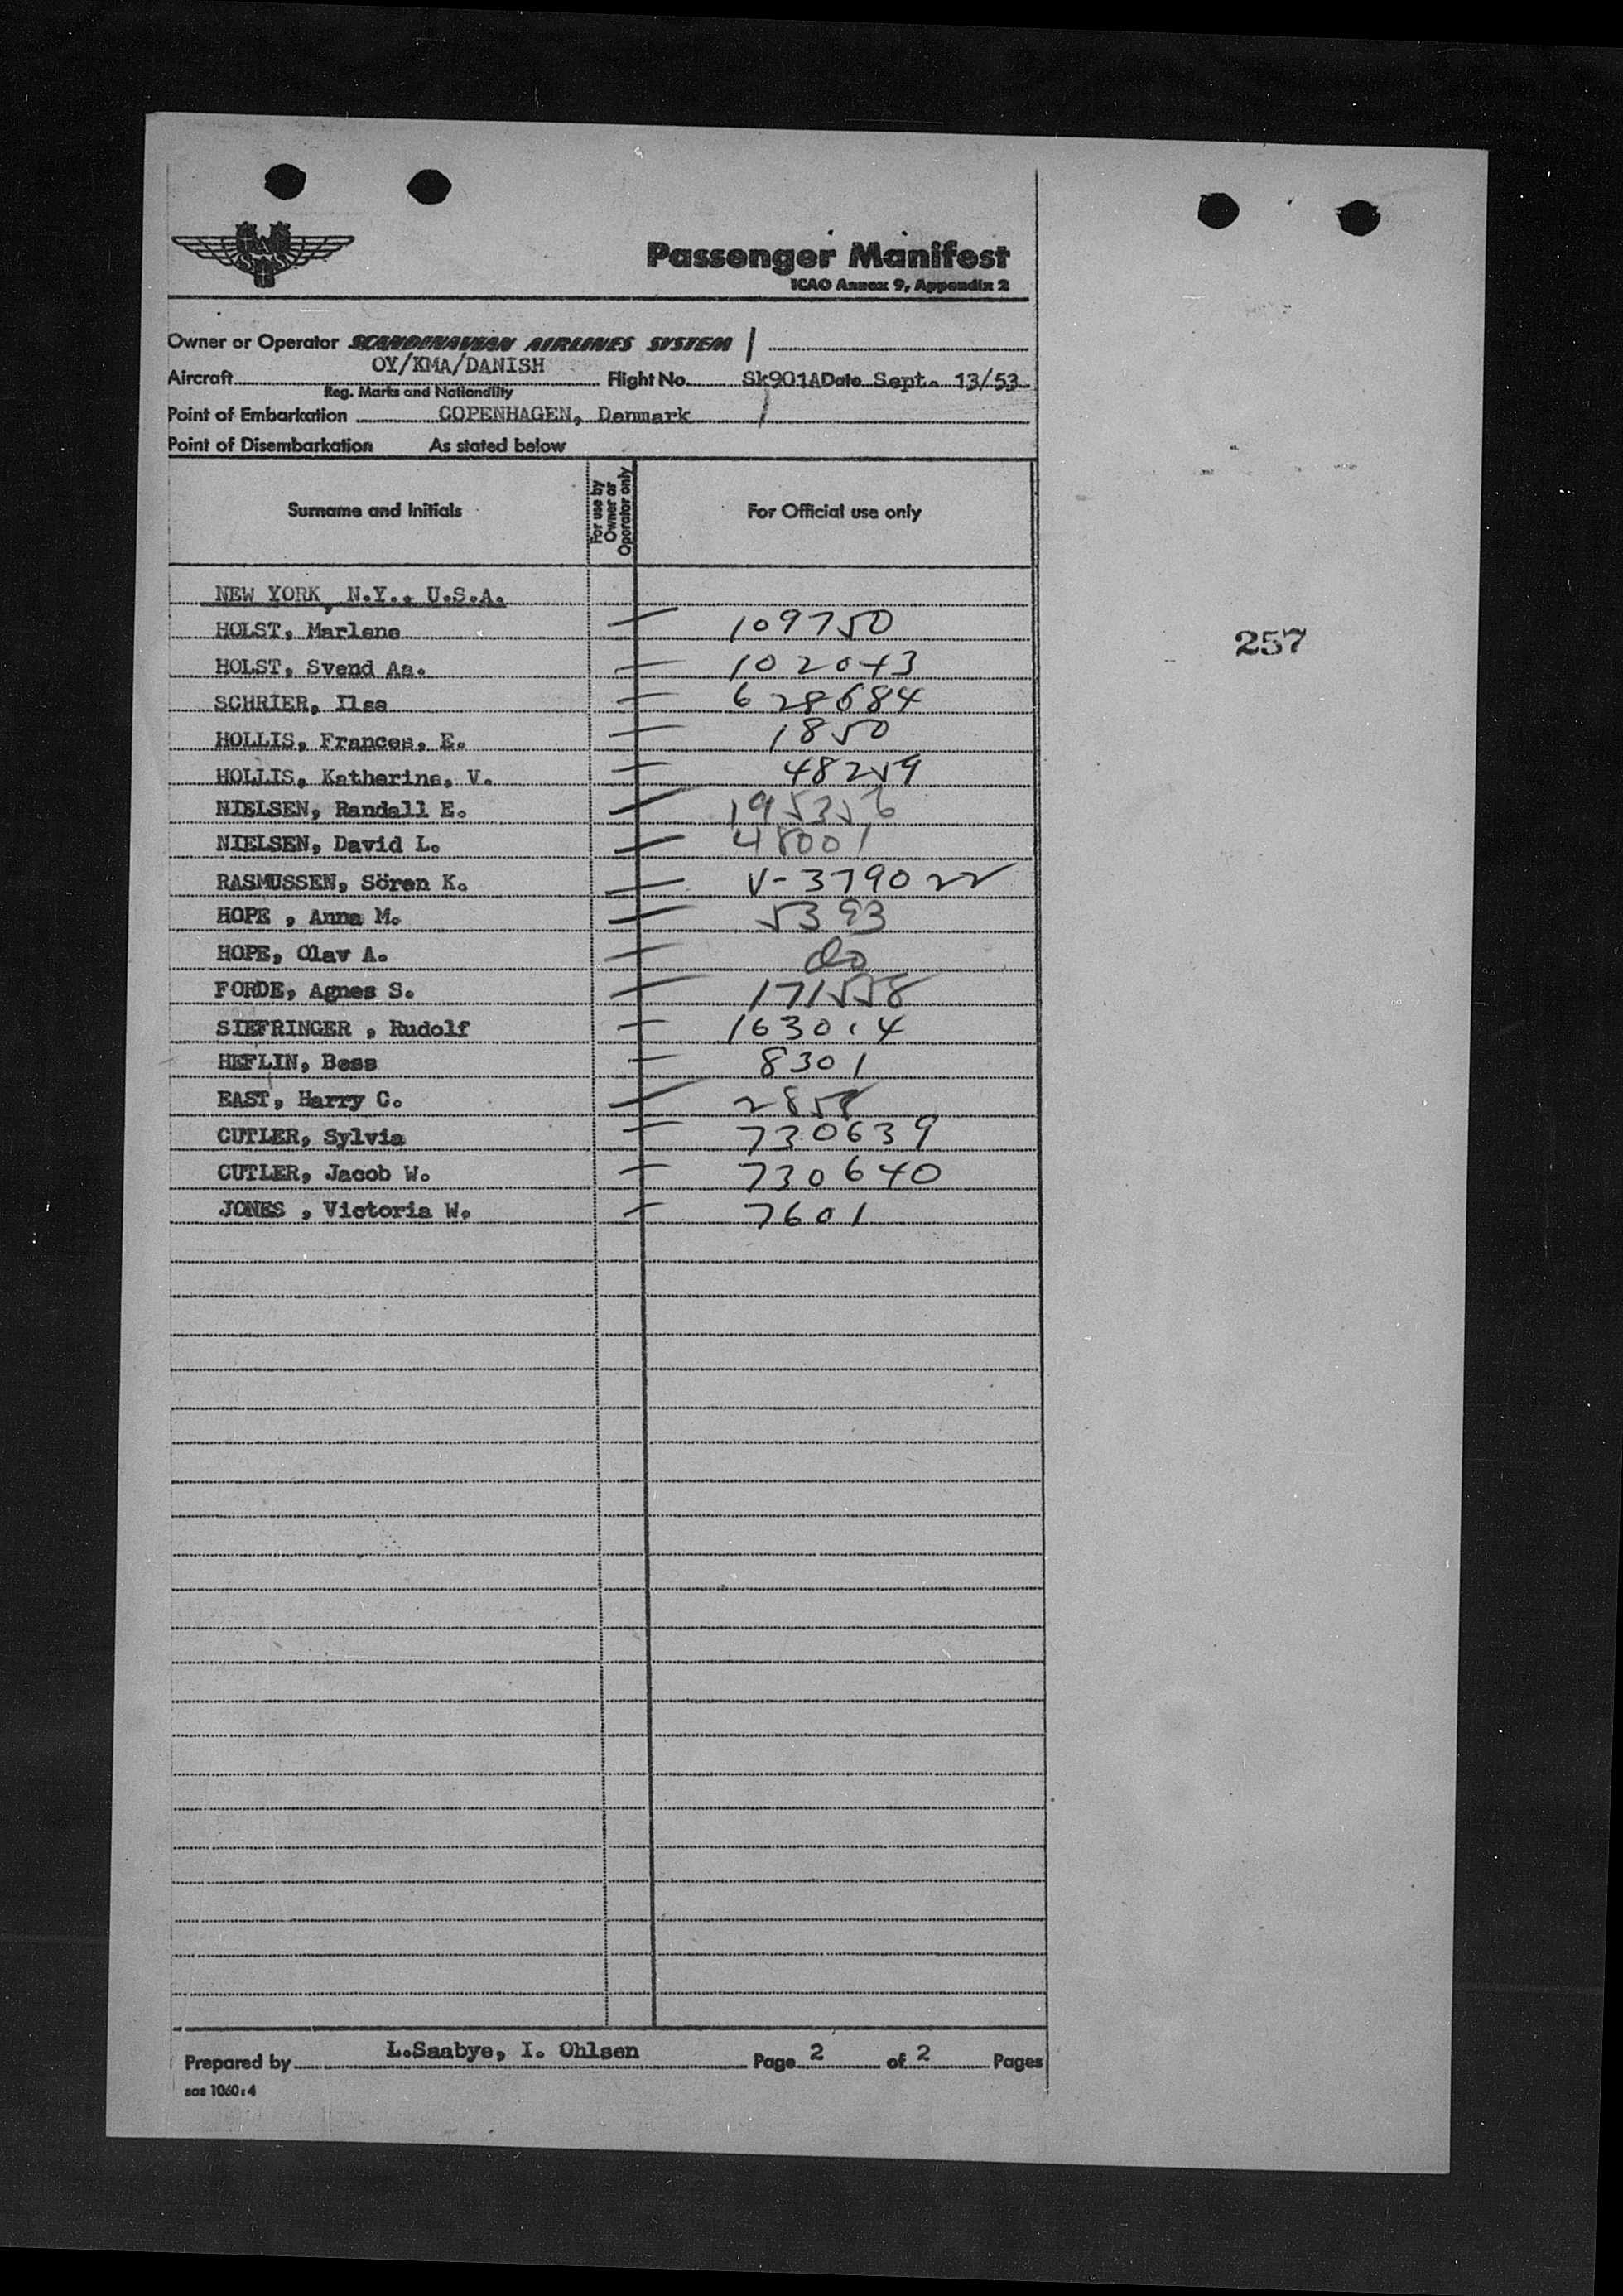 Passenger Manifest
ICAO Annex 9, Appendix 2
Owner or Operator SCANDINAVIAN AIRLINES SYSTEM
Aircraft OY/KMA/DANISH Flight No. Sk901A Date Sept. 13/53
Reg. Marks and Nationality
Point of Embarkation COPENHAGEN, Denmark
Point of Disembarkation As stated below
Surname and Initials For use by Owner or Operator only For Official use only
NEW YORK, N.Y., U.S.A.
HOLST, Marlene 109750
257
HOLST, Svend Aa. 102043
SCHRIER, Ilse 628684
HOLLIS, Frances, E. 1850
HOLLIS, Katherine, V. 48259
NIELSEN, Randall E. 195356
NIELSEN, David L. 48001
RASMUSSEN, Sören K. V-379022
HOPE , Anna M. 5393
HOPE, Olav A. do
FORDE, Agnes S. 171558
SIEFRINGER , Rudolf 163014
HEFLIN, Bess 8301
EAST, Harry C. 2858
CUTLER, Sylvia 730639
CUTLER, Jacob W. 730640
JONES , Victoria W. 7601
Prepared by L.Saabye, I. Ohlsen Page 2 of 2 Pages
sas 1060:4